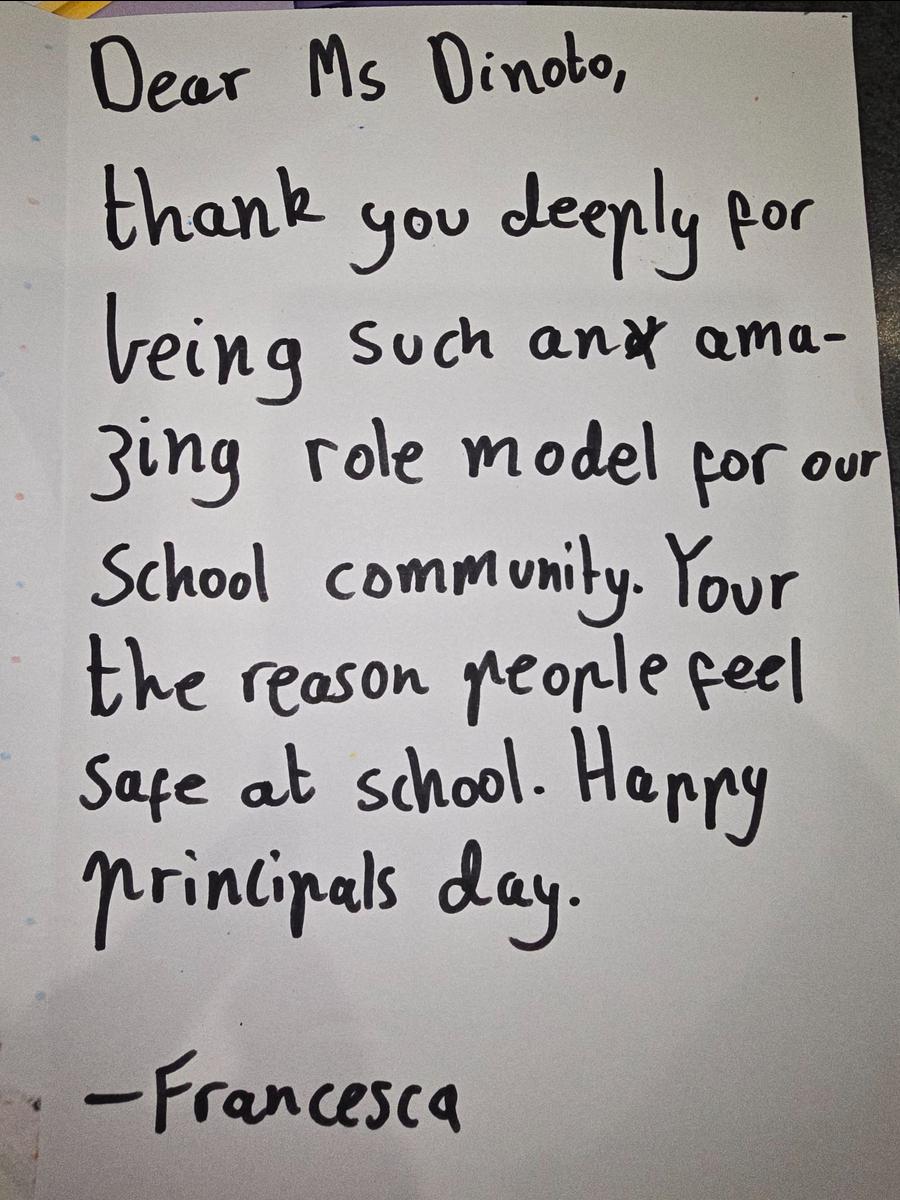 Dear Ms Dinoto,
thank you deeply for
being such an ama-
zing role model for our
School community. Your
the reason people feel
safe at school. Happy
principals day.
—Francesca